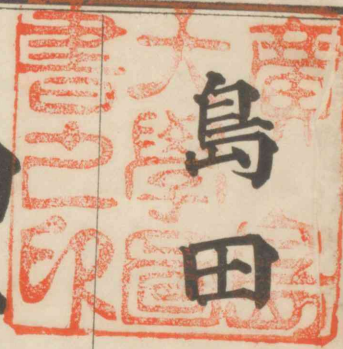 島田
廣島
大學圖
書之印